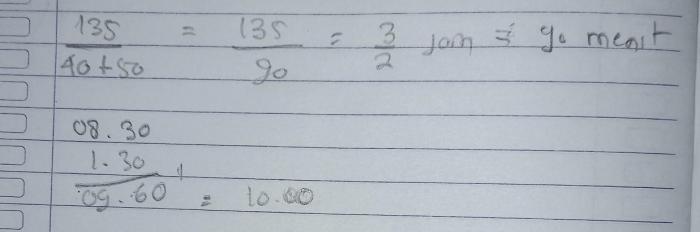 135/40+50 = 135/90 = 3/2 jam = 90 menit
08.30
1.30 +
09.60 = 10.00